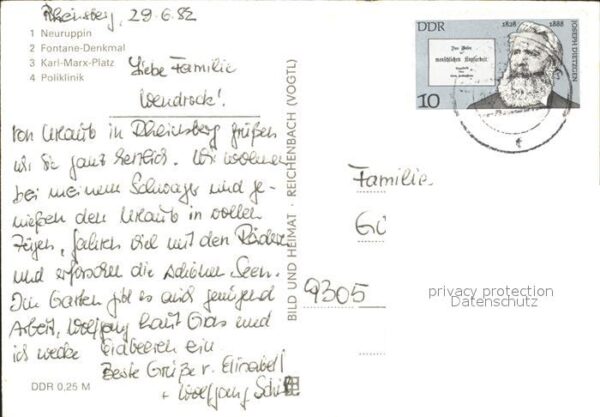 Rheinsberg, 29.6.82
1 Neuruppin
2 Fontane-Denkmal
3 Karl-Marx-Platz
4 Poliklinik
Liebe Familie
Wendrock!
Von Urlaub in Rheinsberg grüßen
wir Sie ganz herzlich. Wir wohnen
bei meinem Schwager und ge-
nießen den Urlaub in vollen
Zügen, fahren viel mit den Räder
und erforschen die schönen Seen.
Im Garten gibt es auch genügend
Arbeit, Wolfgang haut Gras und
ich wecke Erdbeeren ein.
Beste Grüße v. Elisabeth
+ Wolfgang
DDR 0,25 M
BILD UND HEIMAT · REICHENBACH (VOGTL)
DDR
1828 1888
JOSEPH DIETZGEN
Das Wesen
der
menschlichen Kopfarbeit
10
Familie
GÜ
9305
privacy protection
Datenschutz